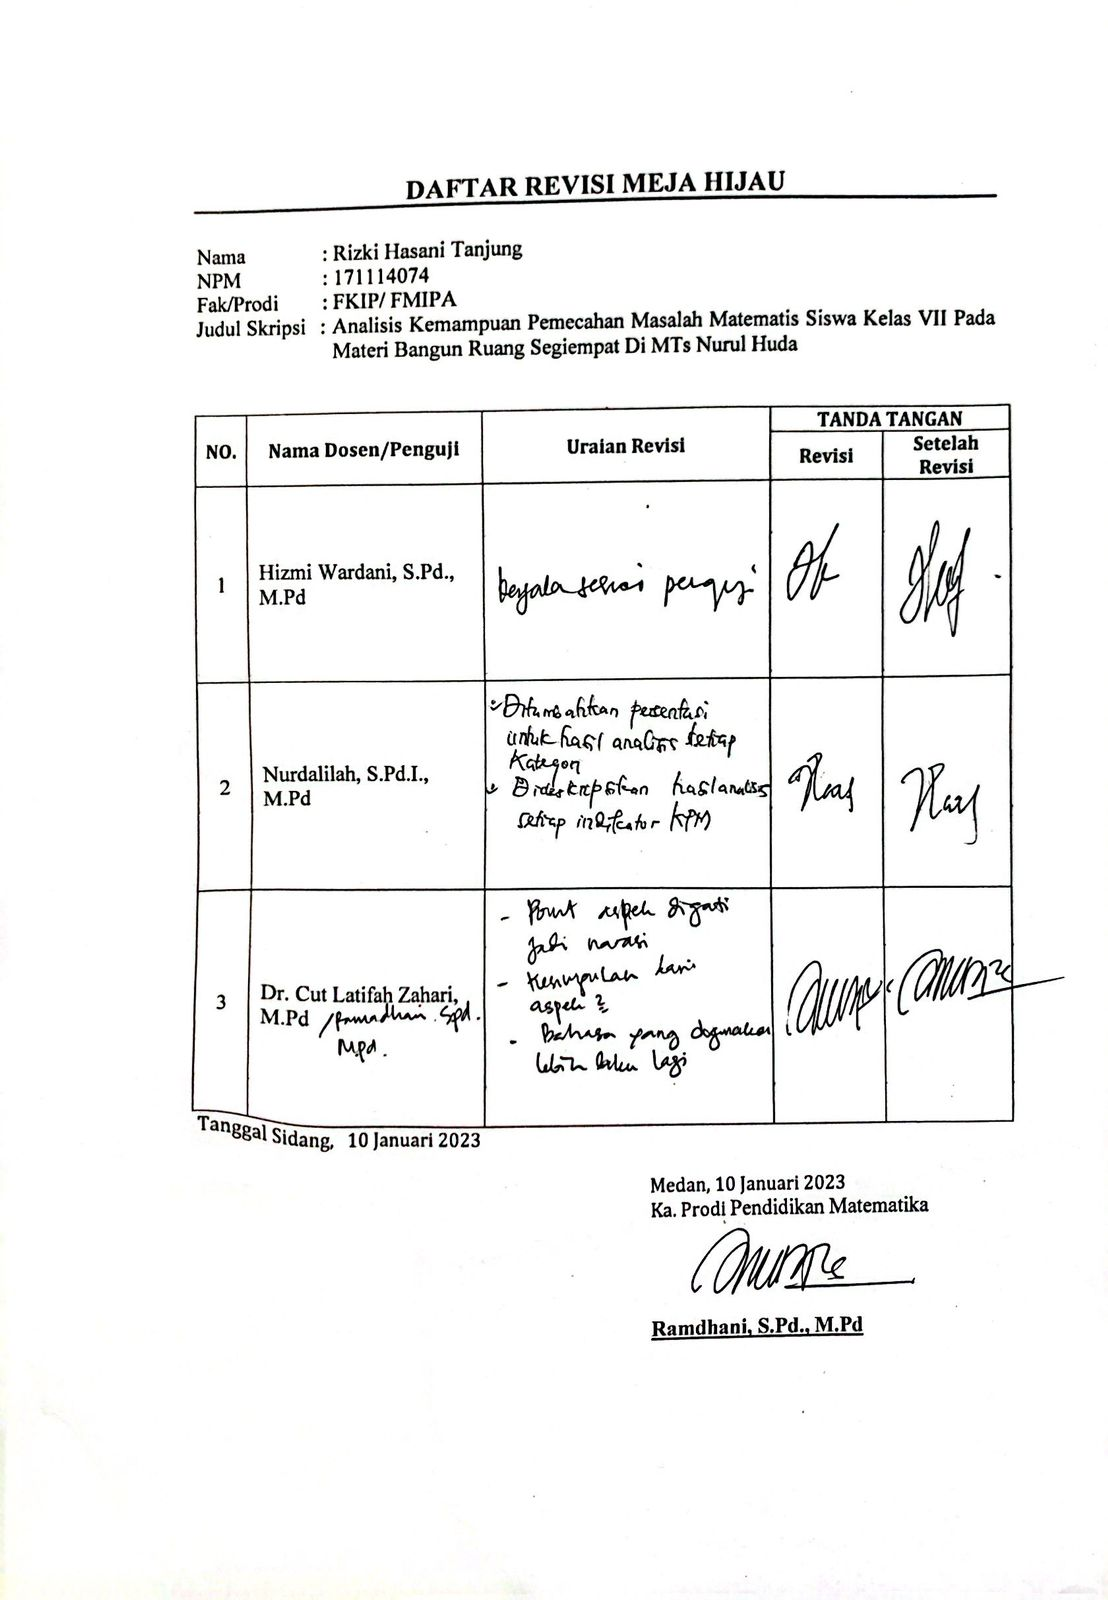 DAFTAR REVISI MEJA HIJAU
Nama : Rizki Hasani Tanjung
NPM : 171114074
Fak/Prodi : FKIP/ FMIPA
Judul Skripsi : Analisis Kemampuan Pemecahan Masalah Matematis Siswa Kelas VII Pada
Materi Bangun Ruang Segiempat Di MTs Nurul Huda
NO. Nama Dosen/Penguji Uraian Revisi TANDA TANGAN
Revisi Setelah
Revisi
1 Hizmi Wardani, S.Pd.,
M.Pd
sesuai penguji
2 Nurdalilah, S.Pd.I.,
M.Pd
Ditambahkan persentasi
untuk hasil analisis setiap
Kategori
Dideskripsikan hasil analisis
setiap indikator KPM
3 Dr. Cut Latifah Zahari,
M.Pd /Ramadhani. Spd.
M.pd.
- Point aspek diganti
jadi narasi
- Kesimpulan
aspek ?
- Bahasa yang digunakan
lebih baku lagi
Tanggal Sidang, 10 Januari 2023
Medan, 10 Januari 2023
Ka. Prodi Pendidikan Matematika
Ramdhani, S.Pd., M.Pd